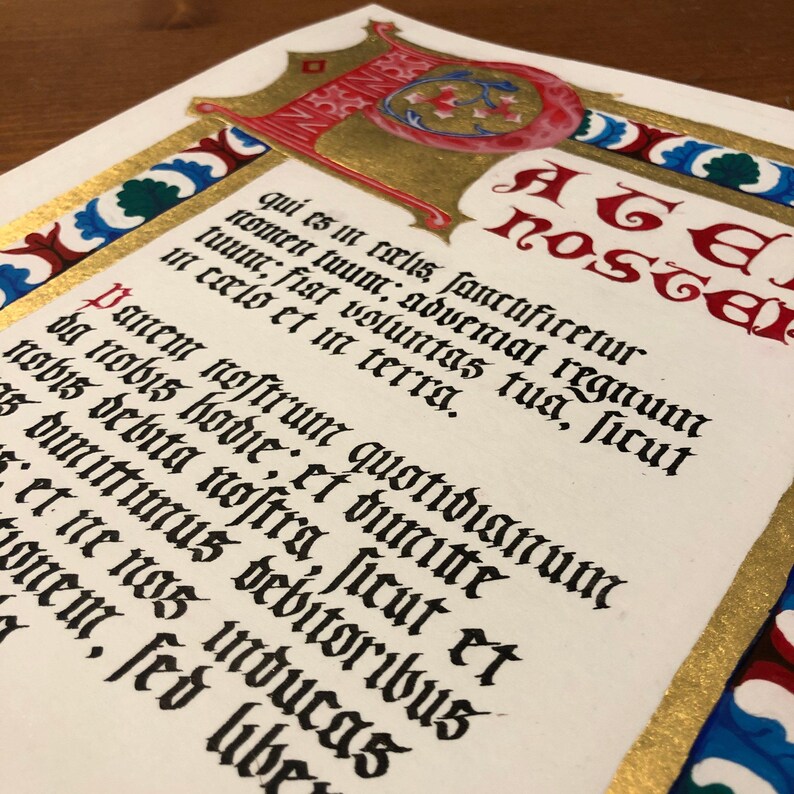 PATER
NOSTER
qui es in cœlis, ſanctificetur
nomen tuum; adveniat regnum
tuum; fiat voluntas tua, ſicut
in cœlo et in terra.
Panem noſtrum quotidianum
da nobis hodie; et dimitte
nobis debita noſtra, ſicut et
dimittimus debitoribus
et ne nos inducas
tionem, ſed liber